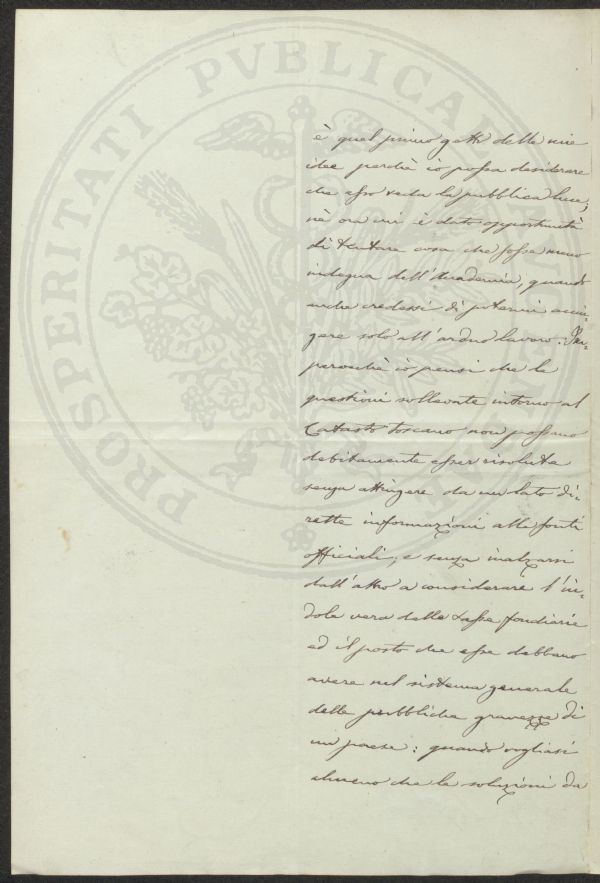 PROSPERITATI PVBLICAE
è quel primo getto delle mie
idee perchè io possa desiderare
che esso veda la pubblica luce;
nè ora mi è dato opportunità
di tentare cosa che fosse meno
indegna dell'Accademia, quando
anche credessi di potermi accin-
gere solo all'arduo lavoro. Im-
perocchè io pensi che le
questioni sollevate intorno al
Catasto toscano non possano
debitamente esser risolute
senza attingere da un lato di-
rette informazioni alle fonti
officiali, e senza inalzarsi
dall'altro a considerare l'in-
dole vera delle tasse fondiarie
ed il posto che esse debbano
avere nel sistema generale
delle pubbliche gravezze di
un paese: quando vogliasi
almeno che le soluzioni da